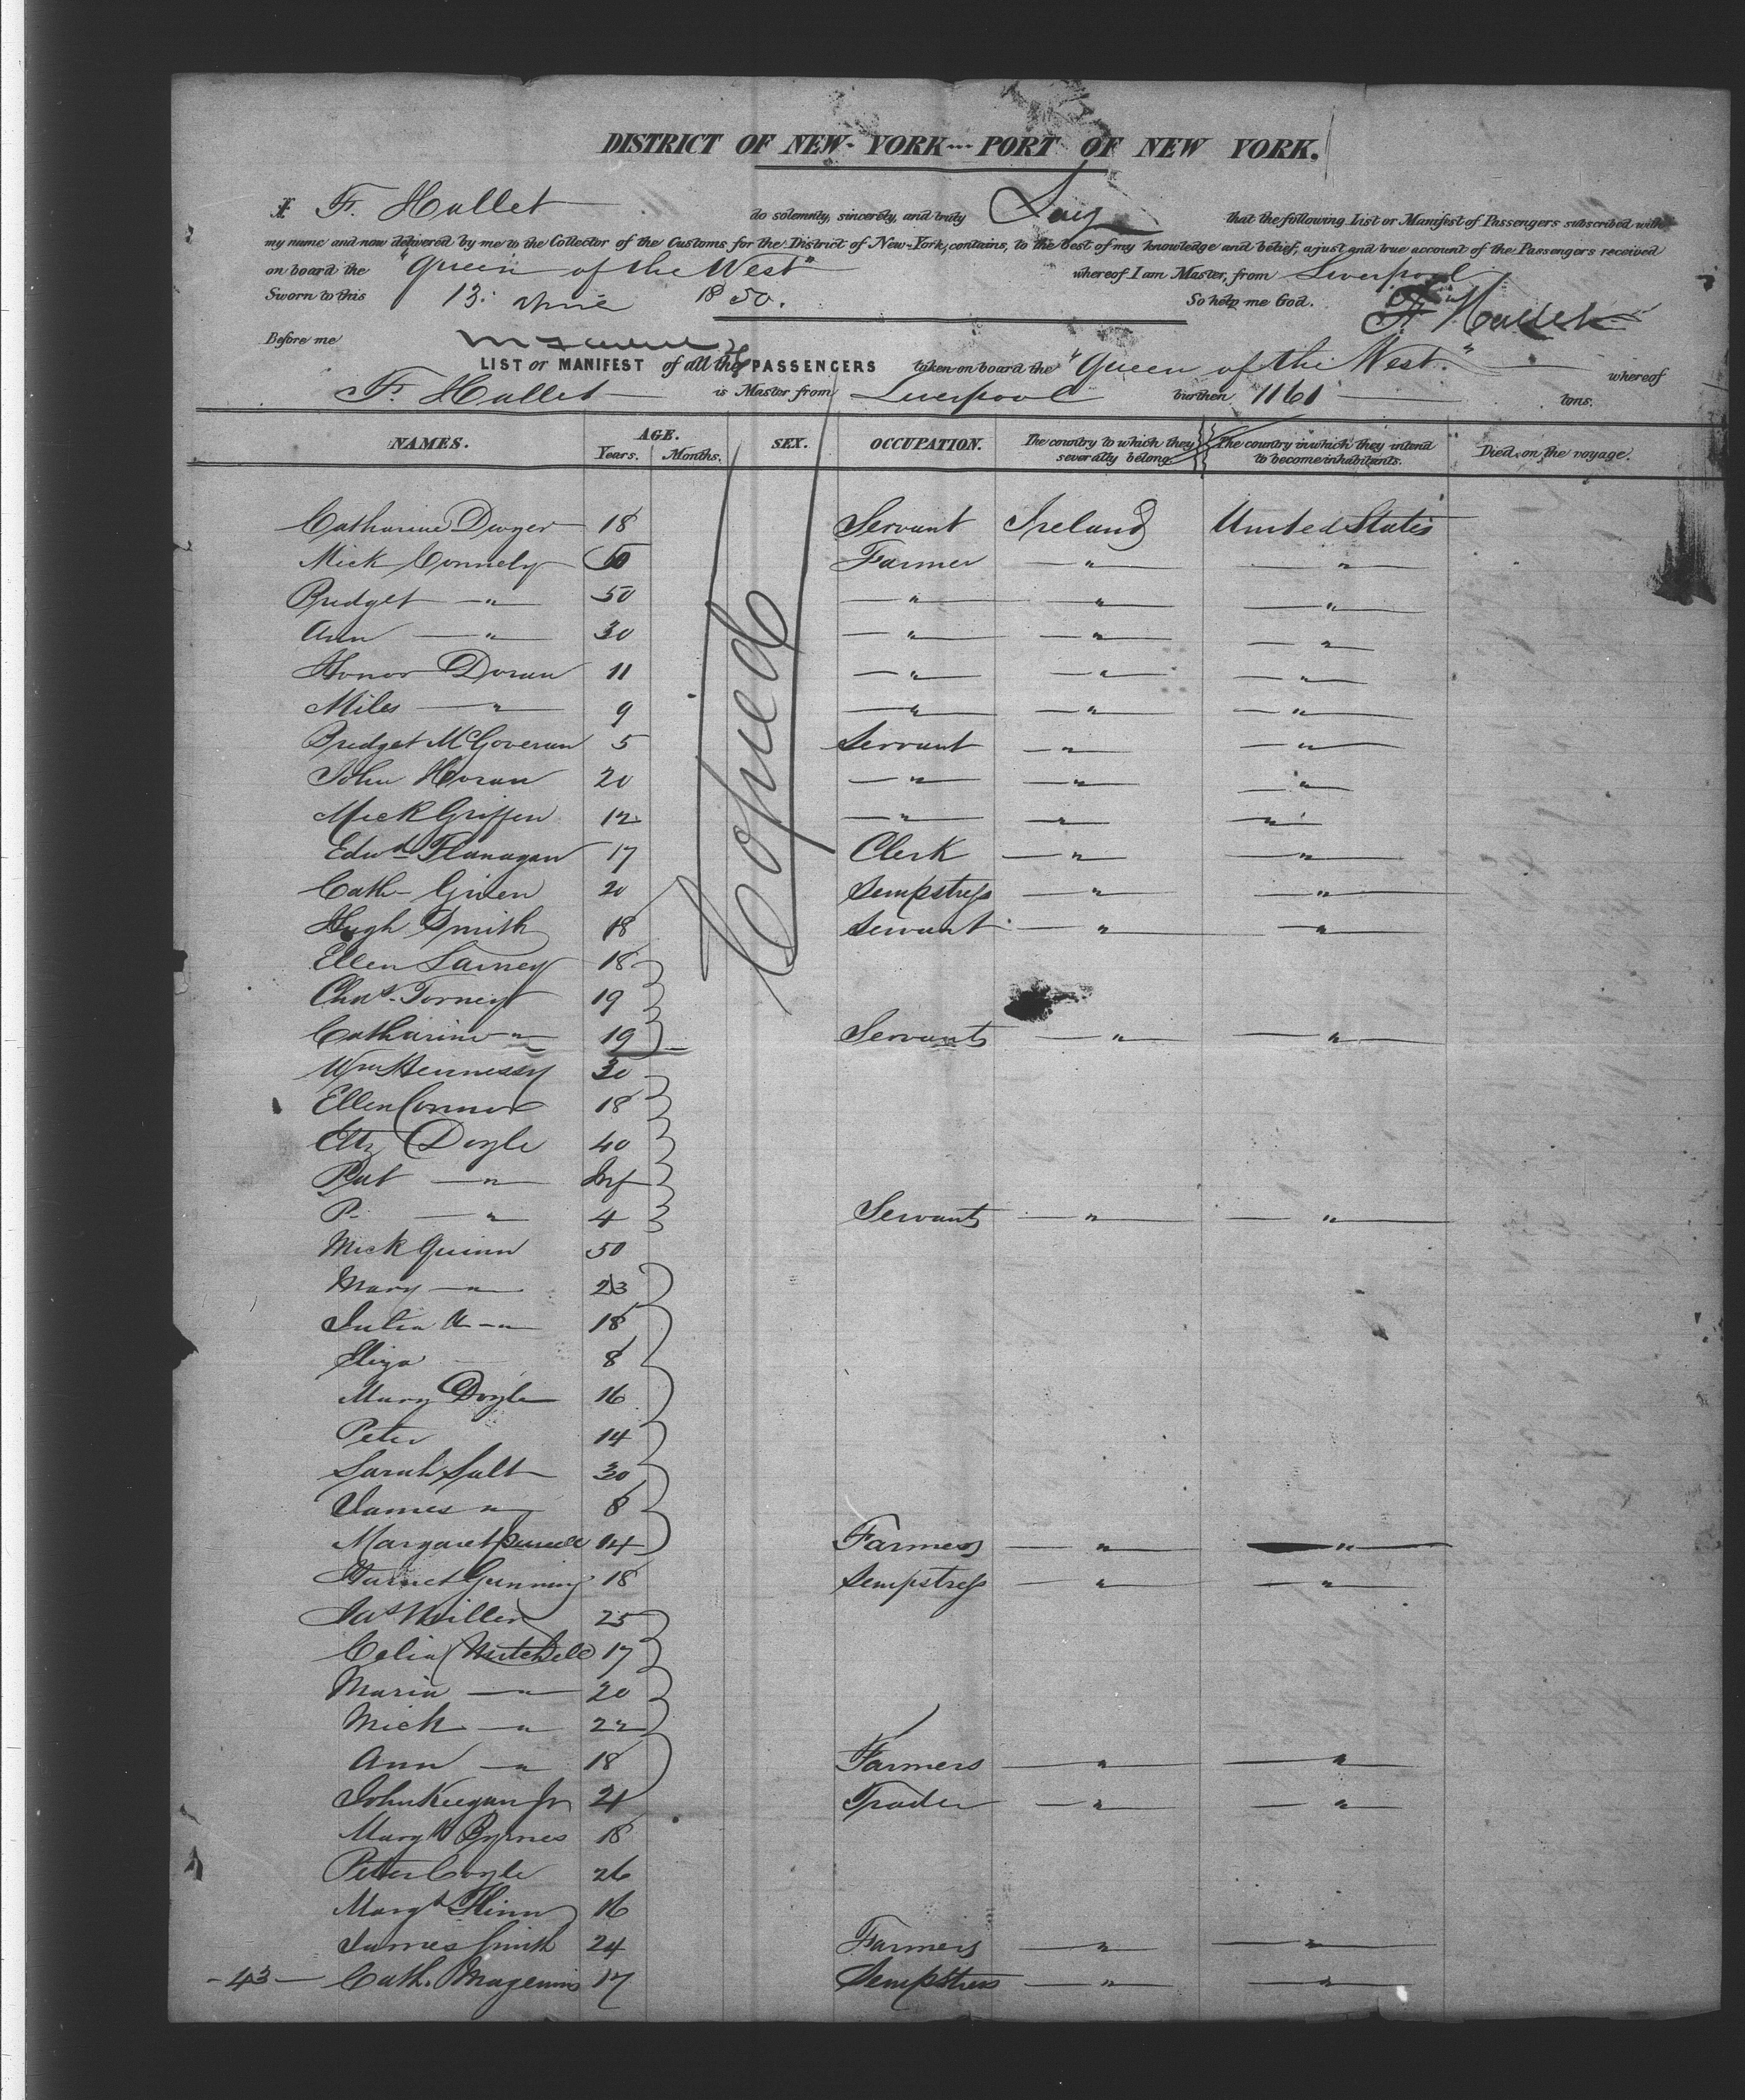 DISTRICT OF NEW-YORK---PORT OF NEW YORK.
I, F. Hallet do solemnly, sincerely, and truly Say that the following List or Manifest of Passengers subscribed with
my name and now delivered by me to the Collector of the Customs for the District of New-York, contains, to the best of my knowledge and belief, a just and true account of the Passengers received
on board the "Queen of the West" whereof I am Master, from Liverpool
Sworn to this 13. June 1850. So help me God. F. Hallet
Before me
LIST or MANIFEST of all the PASSENGERS taken on board the "Queen of the West." whereof
F. Hallet is Master from Liverpool burthen 1161 tons.
NAMES. AGE. Years. Months. SEX. OCCUPATION. The country to which they severally belong. The country in which they intend to become inhabitants. Died on the voyage.
Copied
Catharine Dwyer 18 Servant Ireland United States
Mick Connely Farmer " "
Bridget " 50 " " "
Ann " 30 " " "
Honor Doran 11 " " "
Miles " 9 " " "
Bridget McGoveran 5 Servant " "
John Horan 20 " " "
Mick Griffen 12 " " "
Edwd Flanagan 17 Clerk " "
Cath- Given 20 Sempstress " "
Hugh Smith 18 Servant " "
Ellen 18
Chas. Torney 19
Catharine " 19 Servants " "
Wm Hennessy 30
Ellen Connor 18
Doyle 40
Pat " Inf
P. " 4 Servants " "
Mick Quinn 50
Mary " 23
Julia A " 18
Eliza 8
Mary Doyle 16
Peter 14
Sarah Salt 30
James " 8
Margaret 14 Farmers " "
Harriet Gunning 18 Sempstress " "
Jas Miller 25
Celia Mitchell 17
Maria " 20
Mick " 22
Ann " 18 Farmers " "
John Keegan Jr 21 Trader " "
Margt Byrnes 18
Peter Coyle 26
Margt Flinn 16
James Smith 24 Farmers " "
-43- Cath. Magennis 17 Sempstress " "